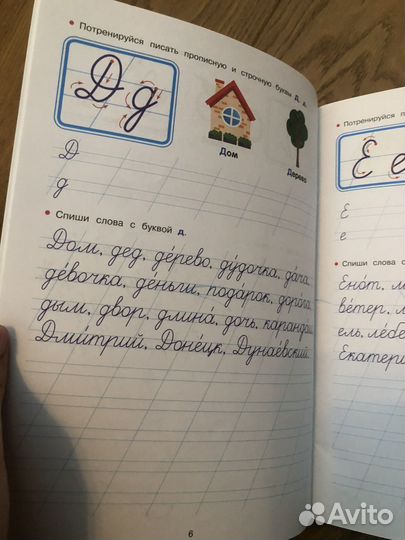 • Потренируйся писать прописную и строчную буквы Д, д.
Д д
Дом
Дерево
Д
д
• Спиши слова с буквой д.
Дом, дед, де́рево, ду́дочка, да́ча,
де́вочка, де́ньги, пода́рок, доро́га
дым, двор, длина́, дочь, каранда
Дми́трий, Доне́цк, Дунае́вский.
6
• Потренируйся
Е е
Е
е
• Спиши слова с
Ено́т,
ве́тер,
ель, ле́бе
Екатери
Avito